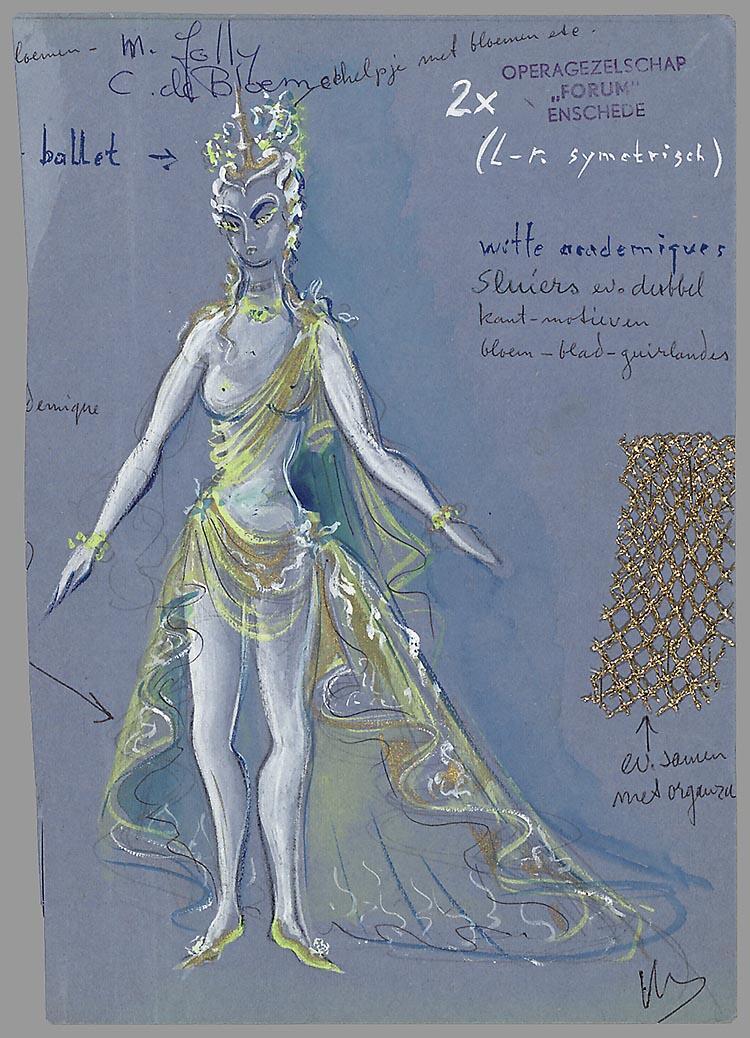 bloemen - M. Jolly
C. de Bloeme
schelpje met bloemen etc.
OPERAGEZELSCHAP
„FORUM”
ENSCHEDE
2x
(L-r. symetrisch)
ballet →
witte academiques
Sluiers ev. dubbel
kant-motieven
bloem-blad-guirlandes
demique
ev. samen
met organza